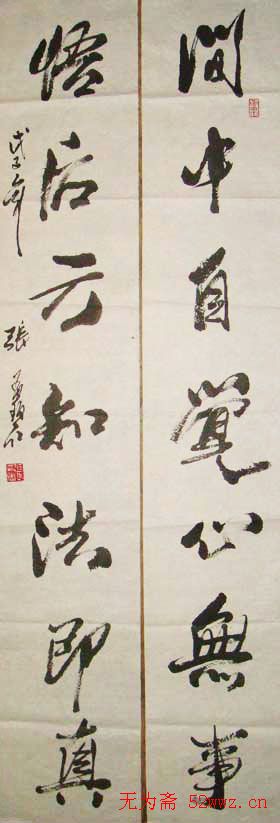 閒中自覺心無事
悟后方知法即真
戊子年
張
无为斋 52wwz.cn